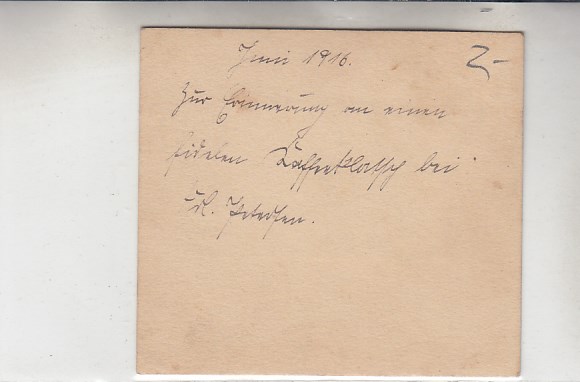 Juni 1916.
2,-
Zur Erinnerung an einen
fidelen Kaffeeklatsch bei
Petersen.